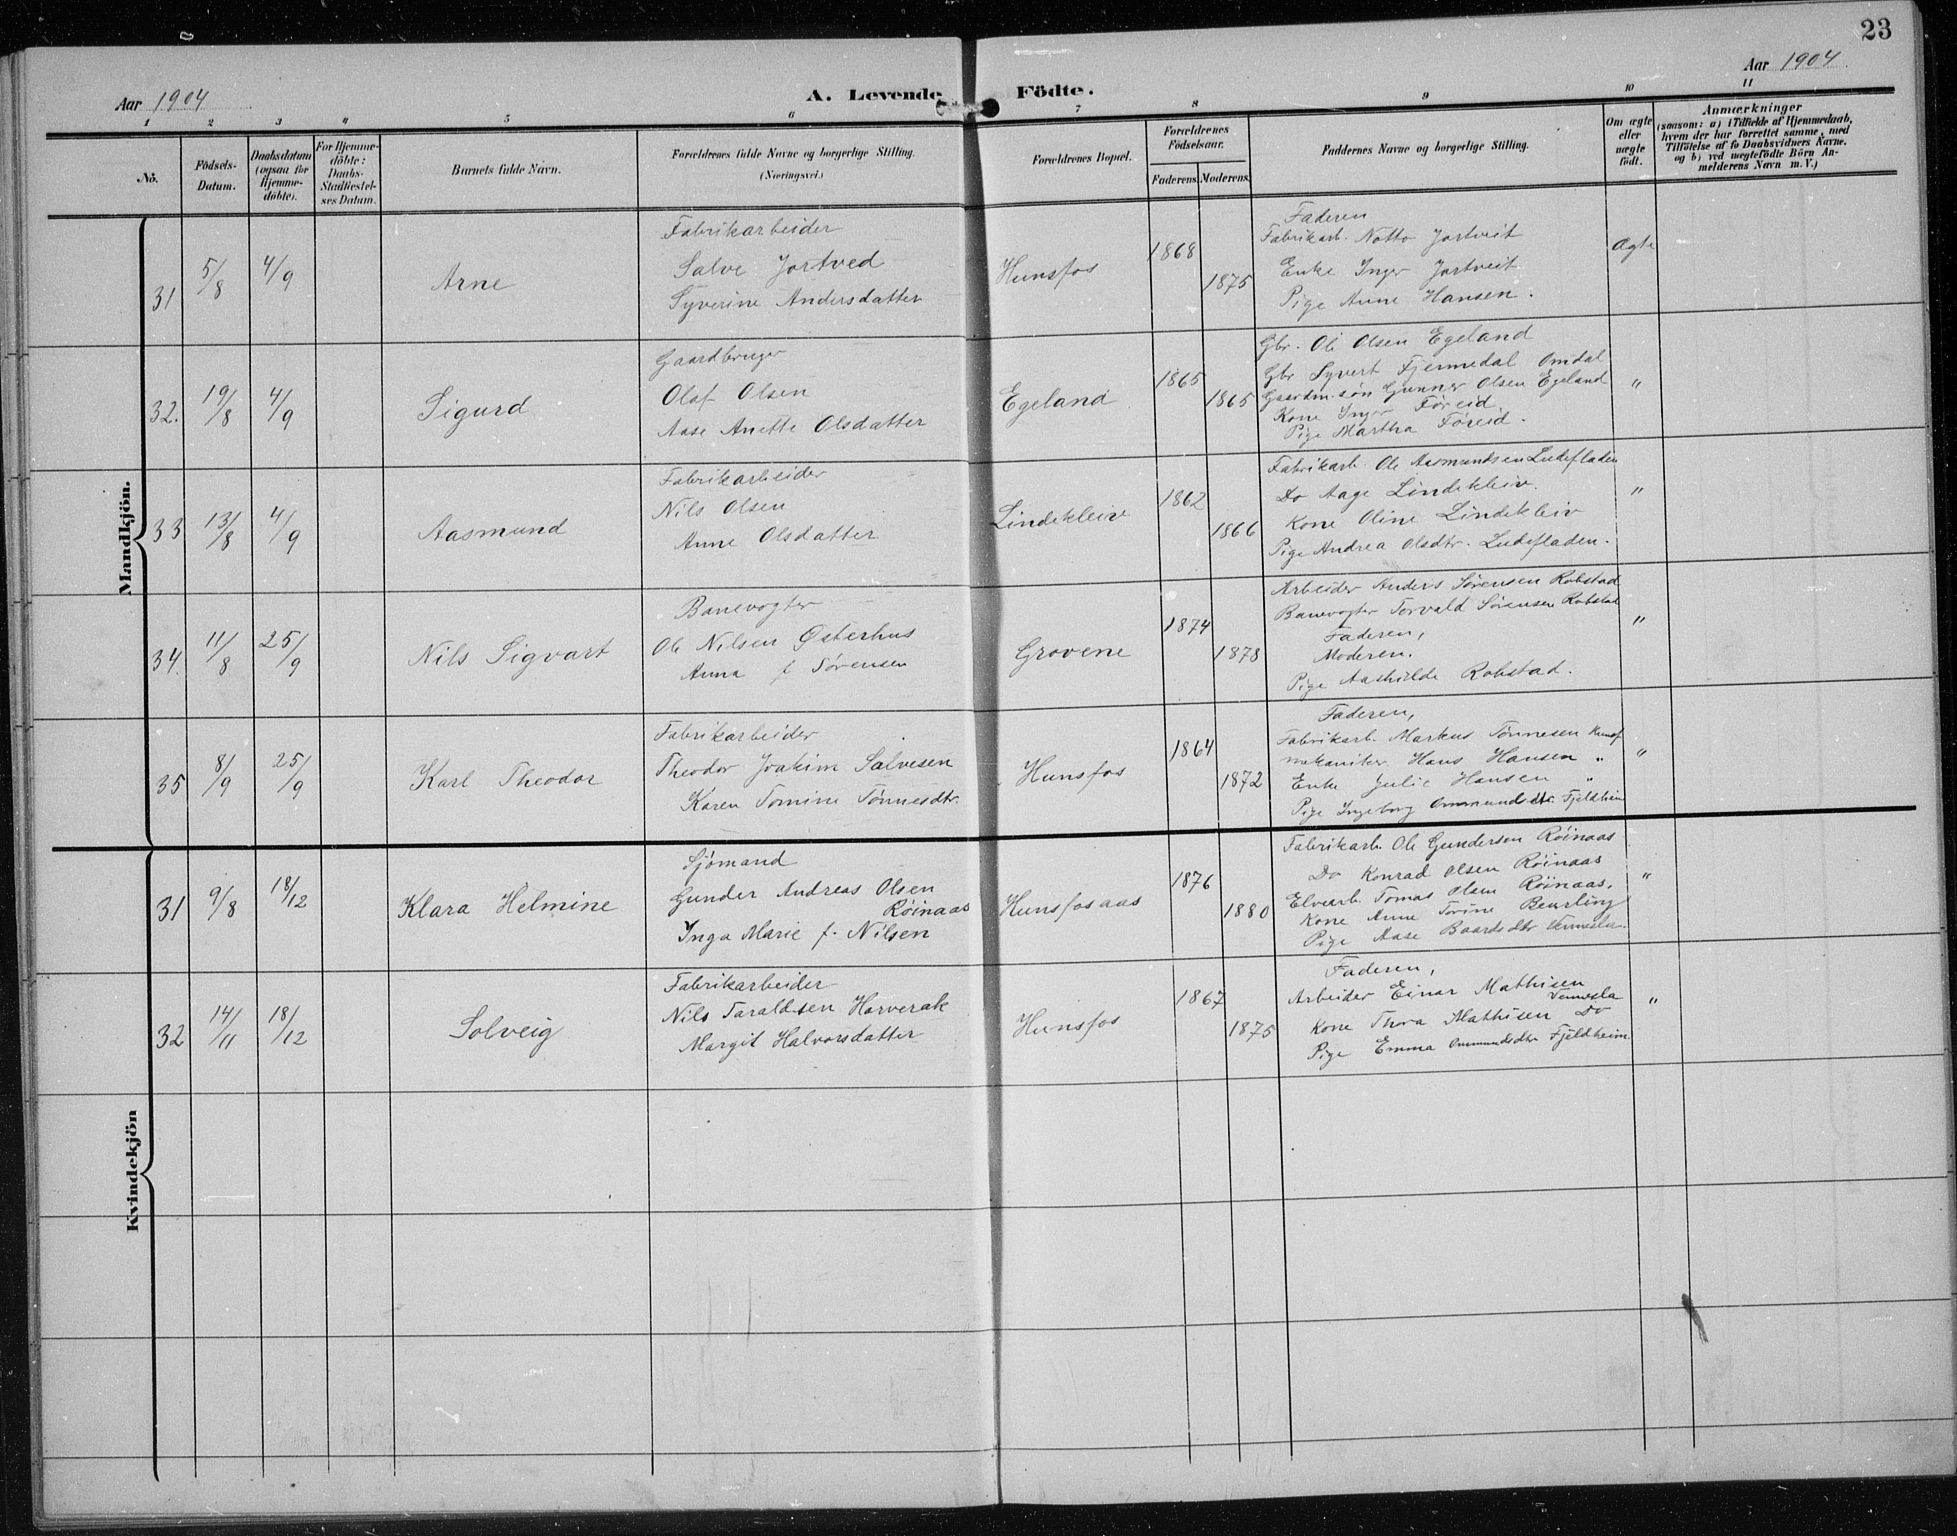 23
Aar 1904
A. Levende Födte.
Aar 1904
1 2 3 4 5 6 7 8 9 10 11
No.
Födsels-Datum.
Daabsdatum (ogsaa for Hjemme-döbte).
For Hjemme-döbte: Daabs-Stadfæstel-ses Datum.
Barnets fulde Navn.
Forældrenes fulde Navne og borgerlige Stilling.
(Næringsvei.)
Forældrenes Bopæl.
Forældrenes Födselsaar.
Faderens. Moderens.
Faddernes Navne og borgerlige Stilling.
Om ægte eller uægte födt.
Anmærkninger
(saasom: a) i Tilfælde af Hjemmedaab,
hvem der har forrettet samme, med
Tilföielse af to Daabsvidners Navne,
og b) ved uægtefödte Börn An-
melderens Navn m. V.)
Mandkjön.
31 5/8 4/9 Arne
Fabrikarbeider
Salve Jortved
Syverine Andersdatter
Hunsfos 1868 1875
Faderen
Fabrikarb. Notto Jortveit
Enke Inger Jortveit
Pige Anne Hansen.
Ægte
32. 19/8 4/9 Sigurd
Gaardbruger
Olaf Olsen
Aase Anette Olsdatter
Egeland 1865 1865
Gbr. Ole Olsen Egeland
Gbr Syvert Fjermedal Omdal
Gaardm. søn Gunner Olsen Egeland
Kone Inger Føreid
Pige Martha Føreid.
"
33 13/8 4/9 Aasmund
Fabrikarbeider
Nils Olsen
Anne Olsdatter
Lindekleiv 1862 1866
Fabrikarb. Ole Aasmundsen Ludefladen
Do Aage Lindekleiv.
Kone Oline Lindekleiv
Pige Andrea Olsdtr. Ludefladen.
"
34. 11/8 25/9 Nils Sigvart
Banevogter
Ole Nilsen Østerhus
Anna f Sørensen
Grovene 1874 1878
Arbeider Anders Sørensen Robstad
Banevogter Torvald Sørensen Robstad
Faderen,
Moderen.
Pige Aashilde Robstad.
"
35 8/9 25/9 Karl Theodor
Fabrikarbeider
Theodor Joakim Salvesen
Karen Tomine Tønnesdtr.
Hunsfos 1864 1872
Faderen,
Fabrikarb. Markus Tønnesen Hunsf
mekaniker Hans Hansen "
Enke Julie Hansen "
Pige Ingeborg Ommundsdtr Fjeldheim
"
Kvindekjön
31 9/8 18/12 Klara Helmine
Sjømand
Gunder Andreas Olsen
Røinaas
Inga Marie f. Nilsen
Hunsfosaas 1876 1880
Fabrikarb. Ole Gundersen Røinaas
Do Konrad Olsen Røinaas
Elvearb. Tomas Olsen Røinaas.
Kone Anne Torine Beurling
Pige Aase Baardsdtr Vennesla.
"
32 14/11 18/12 Solveig
Fabrikarbeider
Nils Taraldsen Harverak
Margit Halvorsdatter
Hunsfos 1867 1875
Faderen,
Arbeider Einar Mathisen
Vennesla
Kone Thora Mathisen Do
Pige Emma Ommundsdtr Fjeldheim.
"